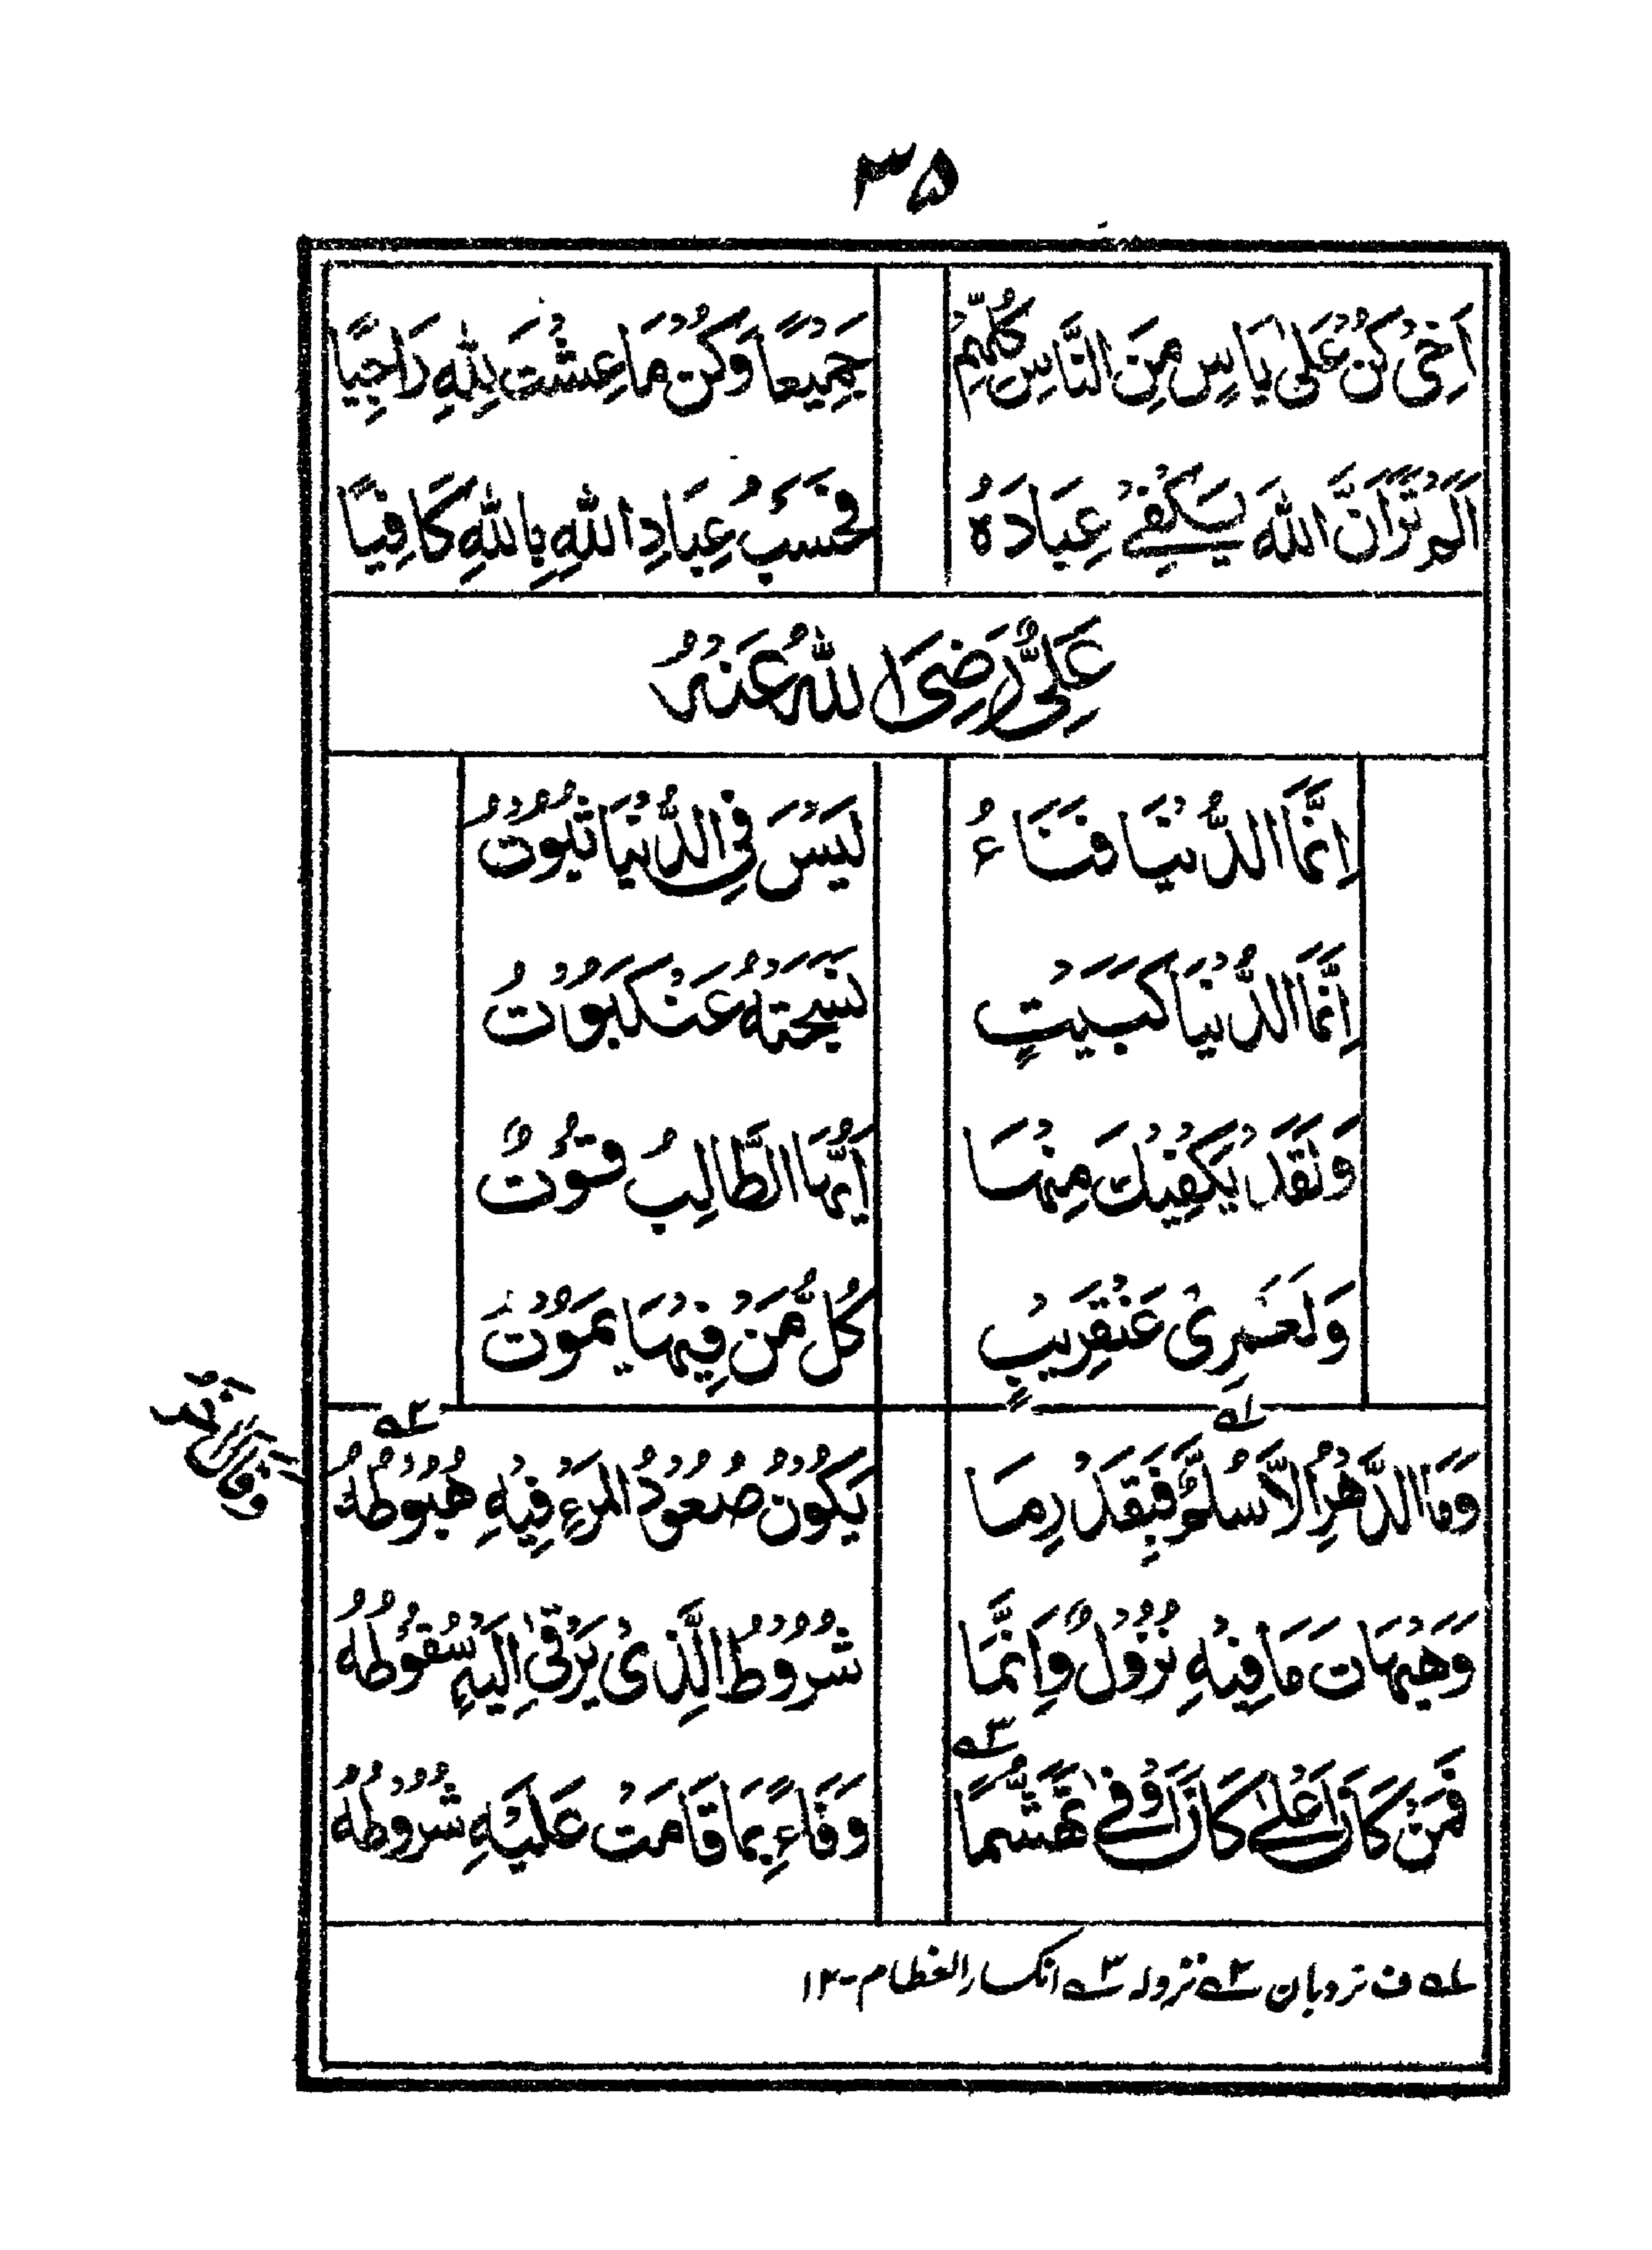 ۳۵
اَخِیْ کُنْ عَلٰی یَاسٍ مِنَ النَّاسِ کُلِّهِمُ جَمِیْعًا وَکُنْ مَا عِشْتَ لِلّٰهِ رَاجِیًا
اَلَمْ تَرَ اَنَّ اللّٰهَ یَکْفِیْ عِبَادَهُ فَحَسْبُ عِبَادِ اللّٰهِ بِاللّٰهِ کَافِیًا
عَلِیٌّ رَضِیَ اللّٰهُ عَنْهُ
اِنَّمَا الدُّنْیَا فَنَاءُ لَیْسَ فِی الدُّنْیَا ثُبُوْتُ
اِنَّمَا الدُّنْیَا کَبَیْتٍ نَسَجَتْهُ عَنْکَبُوْتُ
وَلَقَدْ یَکْفِیْكَ مِنْهَا اَیُّهَا الطَّالِبُ قُوْتٌ
وَلَعَمْرِیْ عَنْقَرِیْبٍ کُلُّ مَنْ فِیْهَا یَمُوْتُ
وقال اٰخر
وَمَا الدَّهْرُ اِلَّا سُلَّمٌ فَبِقَدْرِ مَا یَکُوْنُ صُعُوْدُ الْمَرْءِ فِیْهِ هُبُوْطُهُ
وَهَیْهَاتَ مَا فِیْهِ نُزُوْلٌ وَاِنَّمَا شُرُوْطُ الَّذِیْ یَرْقٰی اِلَیْهِ سُقُوْطُهُ
فَمَنْ کَانَ اَعْلٰی کَانَ اَوْفٰی تَهَشُّمًا وَفَاءً بِمَا قَامَتْ عَلَیْهِ شُرُوْطُهُ
۱ ف نردبان ۲ نزولہ ۳ انکسار العظام-۱۲